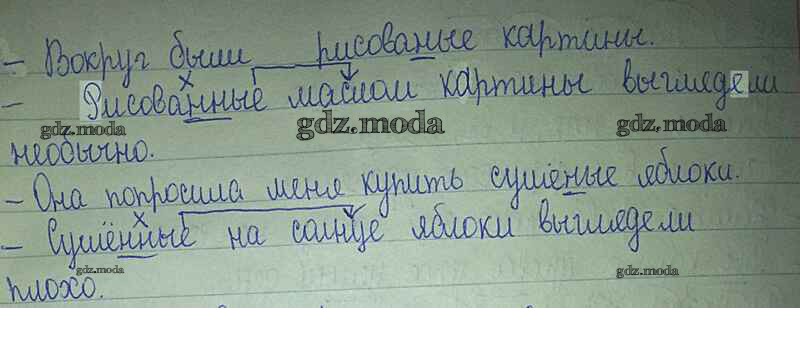 - Вокруг были рисованые картины.
- Рисованные маслом картины выглядели
gdz.moda gdz.moda gdz.moda
необычно.
- Она попросила меня купить сушёные яблоки.
- Сушённые на солнце яблоки выглядели
gdz.moda gdz.moda gdz.moda
плохо.